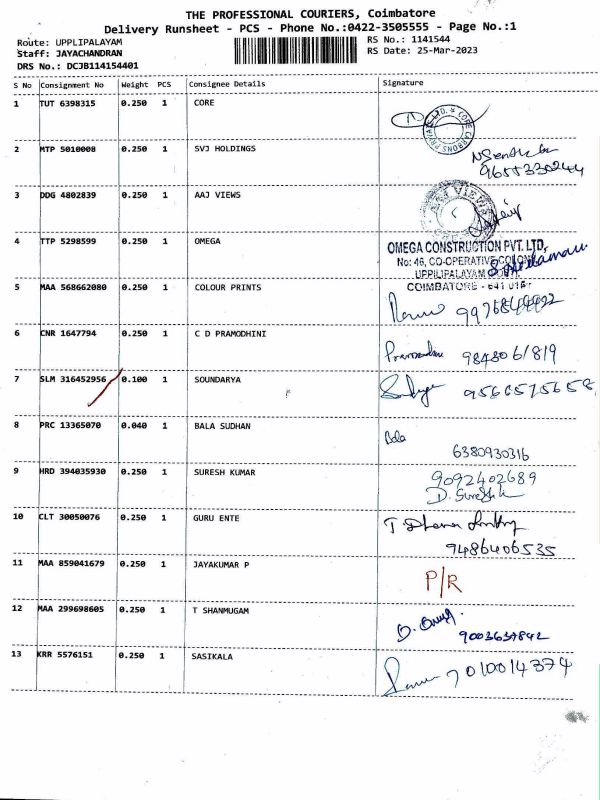 THE PROFESSIONAL COURIERS, Coimbatore
Delivery Runsheet - PCS - Phone No.:0422-3505555 - Page No.:1
Route: UPPLIPALAYAM
Staff: JAYACHANDRAN
DRS No.: DCJB114154401
RS No.: 1141544
RS Date: 25-Mar-2023
S No Consignment No Weight PCS Consignee Details Signature
1 TUT 6398315 0.250 1 CORE
PRIVATE LTD. & CORE CARBONS
2 MTP 5010008 0.250 1 SVJ HOLDINGS
9655330244
3 DDG 4802839 0.250 1 AAJ VIEWS
AAJ VIEWS
4 TTP 5298599 0.250 1 OMEGA
OMEGA CONSTRUCTION PVT. LTD,
No: 46, CO-OPERATIVE COLONY
UPPILIPALAYAM
COIMBATORE - 641 015
5 MAA 568662080 0.250 1 COLOUR PRINTS
6 CNR 1647794 0.250 1 C D PRAMODHINI
9848061819
7 SLM 316452956 0.100 1 SOUNDARYA
9566575658
8 PRC 13365070 0.040 1 BALA SUDHAN
Bala
6380930316
9 HRD 394035930 0.250 1 SURESH KUMAR
9092402689
D. Suresh k
10 CLT 30050076 0.250 1 GURU ENTE
9486406535
11 MAA 859041679 0.250 1 JAYAKUMAR P
P/R
12 MAA 299698605 0.250 1 T SHANMUGAM
9003637842
13 KRR 5576151 0.250 1 SASIKALA
7010014374